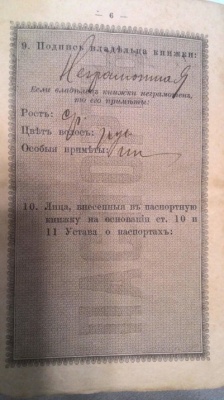 — 6 —
9. Подпись владѣльца книжки:
Неграмотная
Если владѣлецъ книжки неграмотенъ,
то его примѣты:
Ростъ: ср.
Цвѣтъ волосъ:
Особыя примѣты:
10. Лица, внесенныя въ паспортную
книжку на основаніи ст. 10 и
11 Устава о паспортахъ: